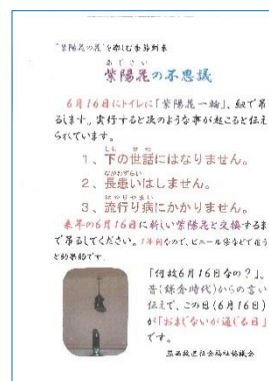 "紫陽花の花"を楽しむ季節到来
あじさい
紫陽花の不思議
6月16日にトイレに「紫陽花一輪」、紐で吊
るします。実行すると次のような事が起こると伝え
られています。
しも せわ
1、下の世話にはなりません。
ながわずらい
2、長患いはしません。
はやりやまい
3、流行り病にかかりません。
来年の6月16日に新しい紫陽花と交換するま
で吊るしてください。1年間なので、ビニール袋などで覆う
と効果的です。
「何故6月16日なの?」。
昔(鎌倉時代)からの言い
伝えで、この日(6月16日)
が「おまじないが通じる日」
です。
社会福祉協議会